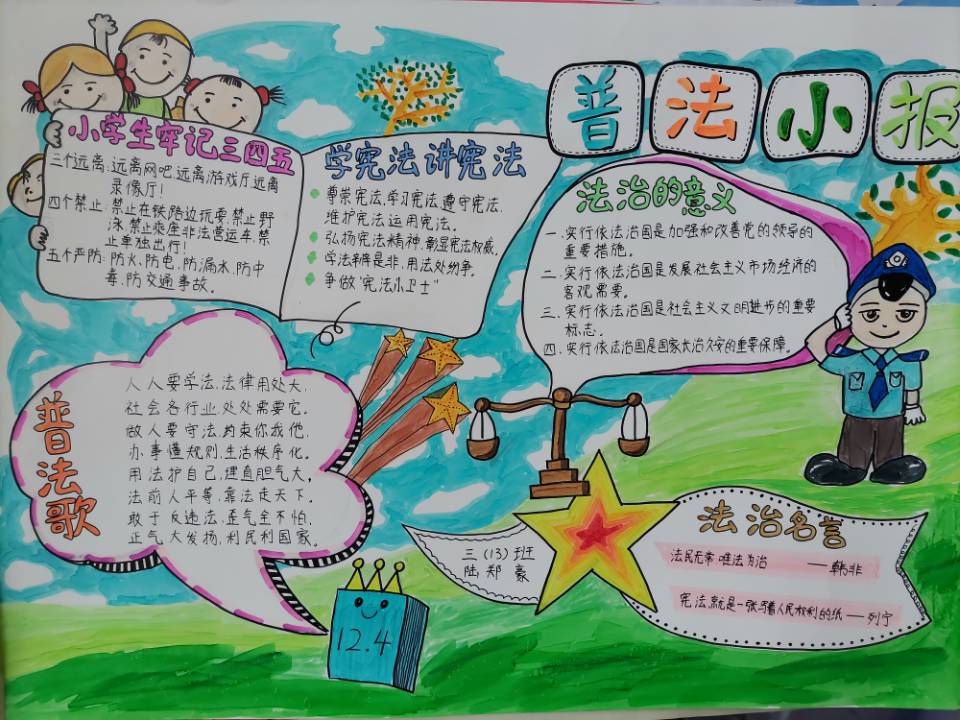 普法小报
小学生牢记三四五
三个远离:远离网吧.远离游戏厅.远离
录像厅!
四个禁止:禁止在铁路边玩耍.禁止野
泳.禁止乘座非法营运车.禁
止单独出行!
五个严防:防火、防电、防漏水、防中
毒、防交通事故。
学宪法讲宪法
尊崇宪法,学习宪法,遵守宪法,
维护宪法,运用宪法。
弘扬宪法精神,彰显宪法权威。
学法辨是非,用法处纷争。
争做“宪法小卫士”
法治的意义
一、实行依法治国是加强和改善党的领导的
重要措施。
二、实行依法治国是发展社会主义市场经济的
客观需要。
三、实行依法治国是社会主义文明进步的重要
标志。
四、实行依法治国是国家长治久安的重要保障。
普法歌
人人要学法,法律用处大,
社会各行业,处处需要它。
做人要守法,约束你我他,
办事懂规则,生活秩序化。
用法护自己,理直胆气大,
法前人平等,靠法走天下。
敢于反违法,歪气全不怕,
正气大发扬,利民利国家。
12.4
三(13)班
陆郑豪
法治名言
法民无常,唯法为治 ——韩非
宪法,就是一张写着人民权利的纸——列宁